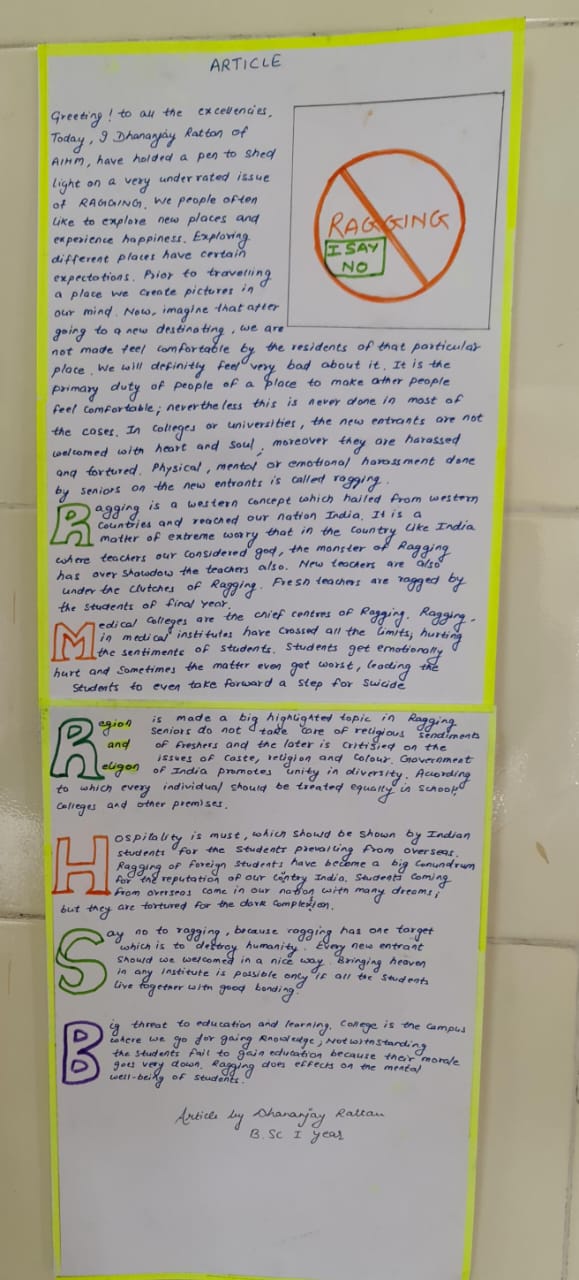 ARTICLE
Greeting! to all the excellencies,
Today, I Dhananjay Rattan of
AIHM, have holded a pen to shed
light on a very under rated issue
of RAGGING. We people often
like to explore new places and
experience happiness. Exploring
different places have certain
expectations. Prior to travelling
a place we create pictures in
our mind. Now, imagine that after
going to a new destinating, we are
RAGGING
I SAY
NO
not made feel comfortable by the residents of that particular
place. We will definitly feel very bad about it. It is the
primary duty of people of a place to make other people
feel comfortable; nevertheless this is never done in most of
the cases. In colleges or universities, the new entrants are not
welcomed with heart and soul; moreover they are harassed
and tortured. Physical, mental or emotional harassment done
by seniors on the new entrants is called ragging.
Ragging is a western concept which hailed from western
Countries and reached our nation India. It is a
matter of extreme worry that in the country like India
where teachers our considered god, the monster of Ragging
has over showdow the teachers also. New teachers are also
under the clutches of Ragging. Fresh teachers are ragged by
the students of final year.
Medical Colleges are the chief centres of Ragging. Ragging
in medical institutes have crossed all the limits, hurting
the sentiments of students. Students get emotionally
hurt and sometimes the matter even got worst, leading the
students to even take forward a step for suicide
Region and Religon is made a big highlighted topic in Ragging
Seniors do not take care of religious sendiments
of freshers and the later is critised on the
issues of caste, religion and colour. Government
of India promotes unity in diversity. According
to which every individual should be treated equally in school,
colleges and other premises.
Hospitality is must, which should be shown by Indian
students for the students prevailing from overseas.
Ragging of foreign students have become a big conundrum
for the reputation of our contry India. Students coming
from overseas come in our nation with many dreams;
but they are tortured for the dark complexion.
Say no to ragging, because ragging has one target
which is to destroy humanity. Every new entrant
should we welcomed in a nice way. Bringing heaven
in any institute is possible only if all the students
live together with good bonding.
Big threat to education and learning. College is the campus
where we go for gaing knowledge; Notwithstanding
the students fail to gain education because their morale
goes very down. Ragging does effects on the mental
well-being of students.
Article by Dhananjay Rattan
B.Sc I year